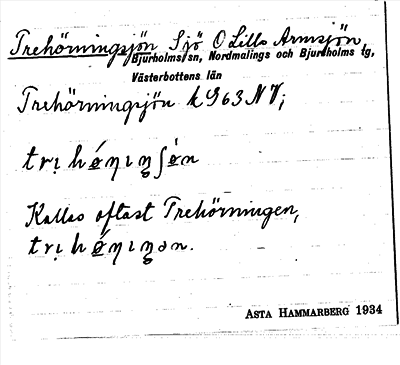 Trehörningsjön Sjö O Lilla Armsjön,
Bjurholms sn, Nordmalings och Bjurholms tg,
Västerbottens län
Trehörningsjön k 963 NV;
Kallas oftast Trehörningen,
ASTA HAMMARBERG 1934